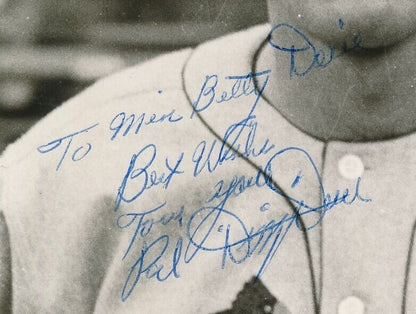 To Miss Betty Davie
Best Wishes
Your
Pal Dizzy Dean